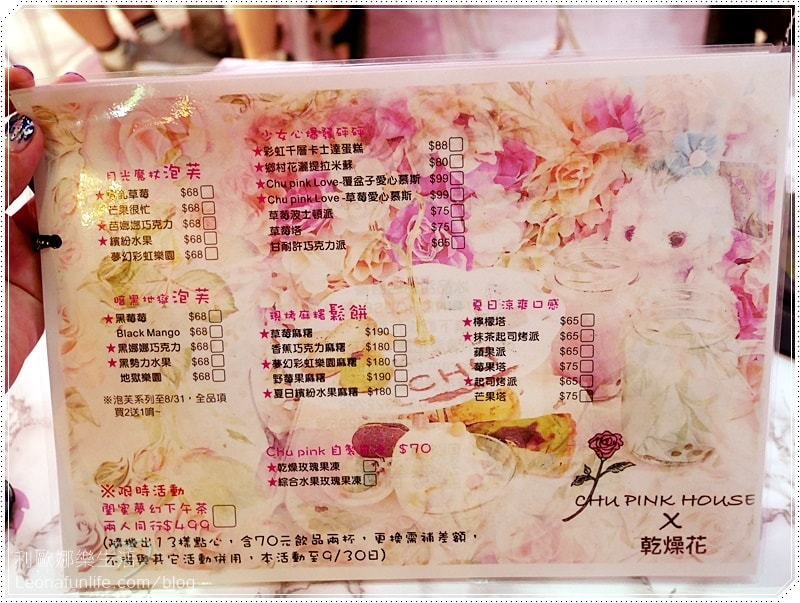 月光魔杖泡芙
草莓 $68
芒果很忙 $68
★芭娜娜巧克力 $68
★繽紛水果 $68
夢幻彩虹樂園 $68
暗黑地獄泡芙
★黑莓莓 $68
Black Mango $68
★黑娜娜巧克力 $68
★黑勢力水果 $68
地獄樂園 $68
※泡芙系列至8/31,全品項
買2送1唷~
少女心爆發砰砰
★彩虹千層卡士達蛋糕 $88
★鄉村花灑提拉米蘇 $80
★Chu pink Love-覆盆子愛心慕斯 $99
★Chu pink Love-草莓愛心慕斯 $99
草莓波士頓派 $75
草莓塔 $75
甘耐許巧克力派 $65
現烤麻糬鬆餅
★草莓麻糬 $190
香蕉巧克力麻糬 $180
★夢幻彩虹樂園麻糬 $180
野莓果麻糬 $190
★夏日繽紛水果麻糬 $180
夏日涼爽口感
★檸檬塔 $65
★抹茶起司烤派 $65
蘋果派 $65
莓果塔 $75
★起司烤派 $65
芒果塔 $75
CHu pink 自製 $70
★乾燥玫瑰果凍
★綜合水果玫瑰果凍
※限時活動
閨蜜夢幻下午茶
兩人同行$499
(隨機出13樣點心,含70元飲品兩杯,更換需補差額,
與其它活動併用,本活動至9/30日)
CHU PINK HOUSE
X
乾燥花
利歐娜樂生活
Leonafunlife.com/blog